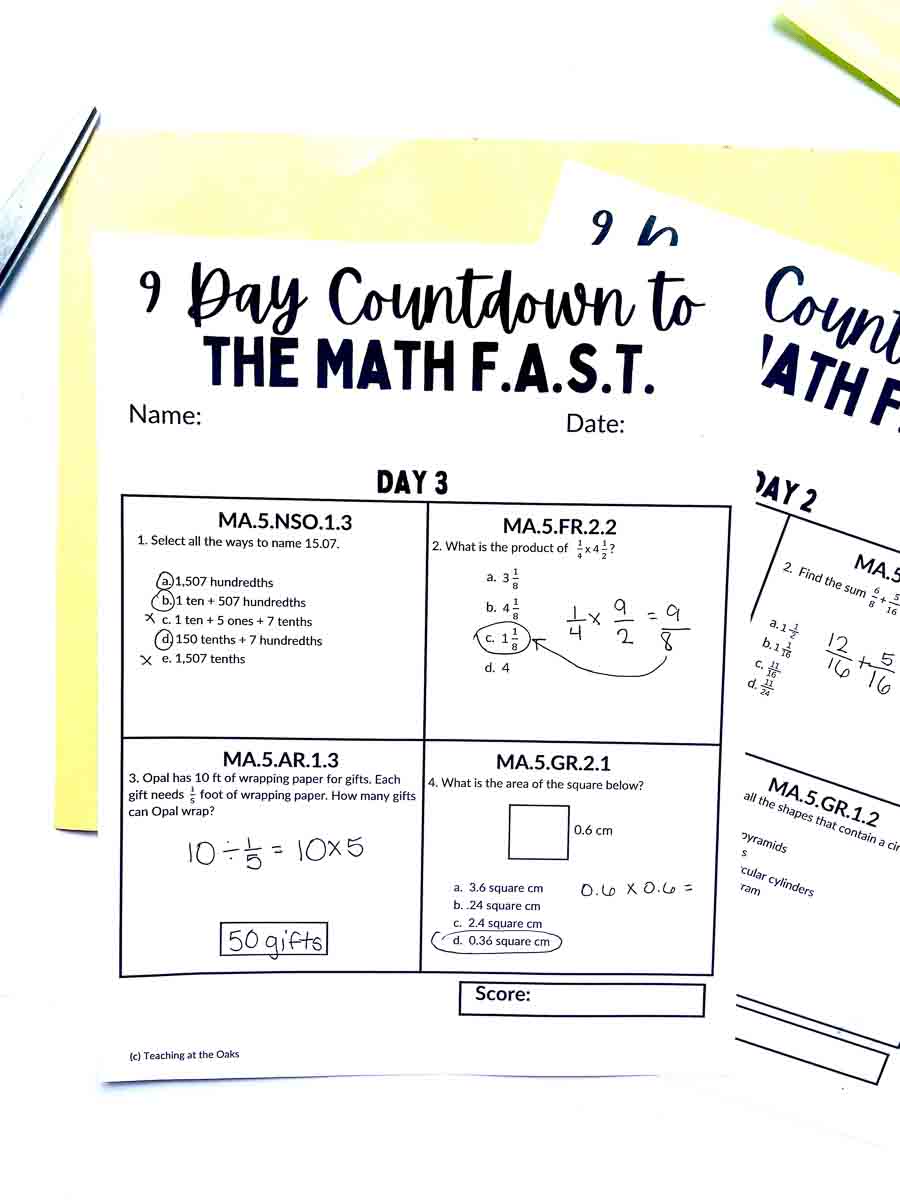 9 Day Countdown to
THE MATH F.A.S.T.
Name:
Date:
DAY 3
MA.5.NSO.1.3
1. Select all the ways to name 15.07.
a. 1,507 hundredths
b. 1 ten + 507 hundredths
x c. 1 ten + 5 ones + 7 tenths
d. 150 tenths + 7 hundredths
x e. 1,507 tenths
MA.5.FR.2.2
2. What is the product of 1/4 x 4 1/2?
a. 3 1/8
b. 4 1/8
c. 1 1/8
d. 4
1/4 x 9/2 = 9/8
MA.5.AR.1.3
3. Opal has 10 ft of wrapping paper for gifts. Each
gift needs 1/5 foot of wrapping paper. How many gifts
can Opal wrap?
10 ÷ 1/5 = 10x5
50 gifts
MA.5.GR.2.1
4. What is the area of the square below?
0.6 cm
a. 3.6 square cm
b. .24 square cm
c. 2.4 square cm
d. 0.36 square cm
0.6 x 0.6 =
Score:
(c) Teaching at the Oaks
9
Count
MATH F
DAY 2
MA.5
2. Find the sum 6/8 + 5/16
a. 1 1/2
b. 1 1/16
c. 11/16
d. 11/24
12/16 + 5/16
MA.5.GR.1.2
all the shapes that contain a cir
pyramids
s
cular cylinders
ram